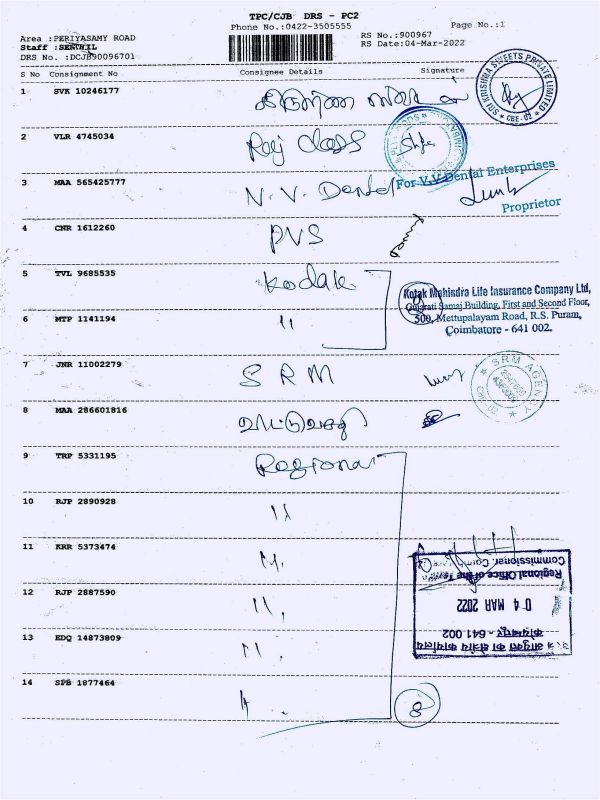 TPC/CJB DRS - PC2
Phone No.:0422-3505555
Page No.:1
Area :PERIYASAMY ROAD
RS No.:900967
Staff :SENTHIL
RS Date:04-Mar-2022
DRS No. :DCJB90096701
S No Consignment No Consignee Details Signature
1 SVK 10246177
SRI KRISHNA SWEETS PRIVATE LIMITED
2 VLR 4745034 Raj Class
3 MAA 565425777 V. V. Dental
For V.V.Dental Enterprises
Proprietor
4 CNR 1612260 PVS
5 TVL 9685535 Kodak
Kotak Mahindra Life Insurance Company Ltd,
Gujarati Samaj Building, First and Second Floor,
500, Mettupalayam Road, R.S. Puram,
Coimbatore - 641 002.
6 MTP 1141194 "
7 JNR 11002279 SRM
SRM AGENCY
8 MAA 286601816
9 TRP 5331195 Regional
10 RJP 2890928 "
11 KRR 5373474 "
12 RJP 2887590 "
13 EDQ 14873809 "
14 SPB 1877464 "
8
Regional Office of the
Commissioner,
04 MAR 2022
कोयम्बतूर - 641 002
आयुक्त का क्षेत्रीय कार्यालय